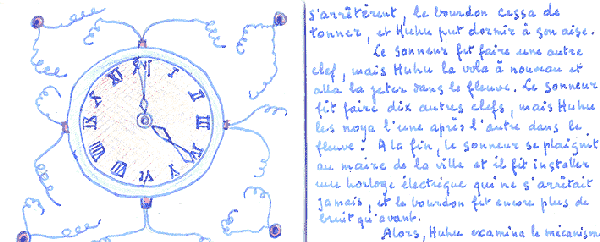 XII
I
II
III
s'arrêtèrent, le bourdon cessa de
tonner, et Huhu put dormir à son aise.
Le sonneur fit faire une autre
clef, mais Huhu la vola à nouveau et
alla la jeter dans le fleuve. Le sonneur
fit faire dix autres clefs, mais Huhu
les noya l'une après l'autre dans le
fleuve. A la fin, le sonneur se plaignit
au maire de la ville et il fit installer
une horloge électrique qui ne s'arrêtait
jamais, et le bourdon fit encore plus de
bruit qu'avant.
Alors, Huhu examina le mécanisme